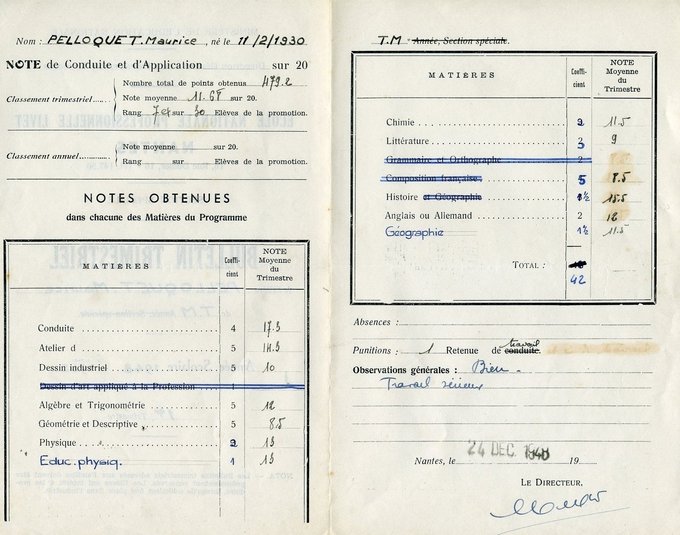 Nom : PELLOQUET. Maurice, né le 11/2/1930
NOTE de Conduite et d'Application sur 20
Classement trimestriel
Nombre total de points obtenus 479.2
Note moyenne 11.68 sur 20.
Rang 7e sur 30 Elèves de la promotion.
Classement annuel
Note moyenne sur 20.
Rang sur Elèves de la promotion.
NOTES OBTENUES
dans chacune des Matières du Programme
MATIÈRES Coefficient NOTE Moyenne du Trimestre
Conduite 4 17.5
Atelier d 5 14.5
Dessin industriel 5 10
Dessin d'art appliqué à la Profession 1
Algèbre et Trigonométrie 5 12
Géométrie et Descriptive 5 8.5
Physique 2 13
Educ. physiq. 1 13
T.M Année, Section spéciale.
MATIÈRES Coefficient NOTE Moyenne du Trimestre
Chimie 2 11.5
Littérature 3 9
Grammaire et Orthographe 2
Composition française 5 8.5
Histoire et Géographie 1½ 15.5
Anglais ou Allemand 2 12
Géographie 1½ 11.5
TOTAL : 42
Absences :
Punitions : 1 Retenue de conduite. travail
Observations générales : Bien.
Travail sérieux
Nantes, le 24 DEC. 1948 19
LE DIRECTEUR,